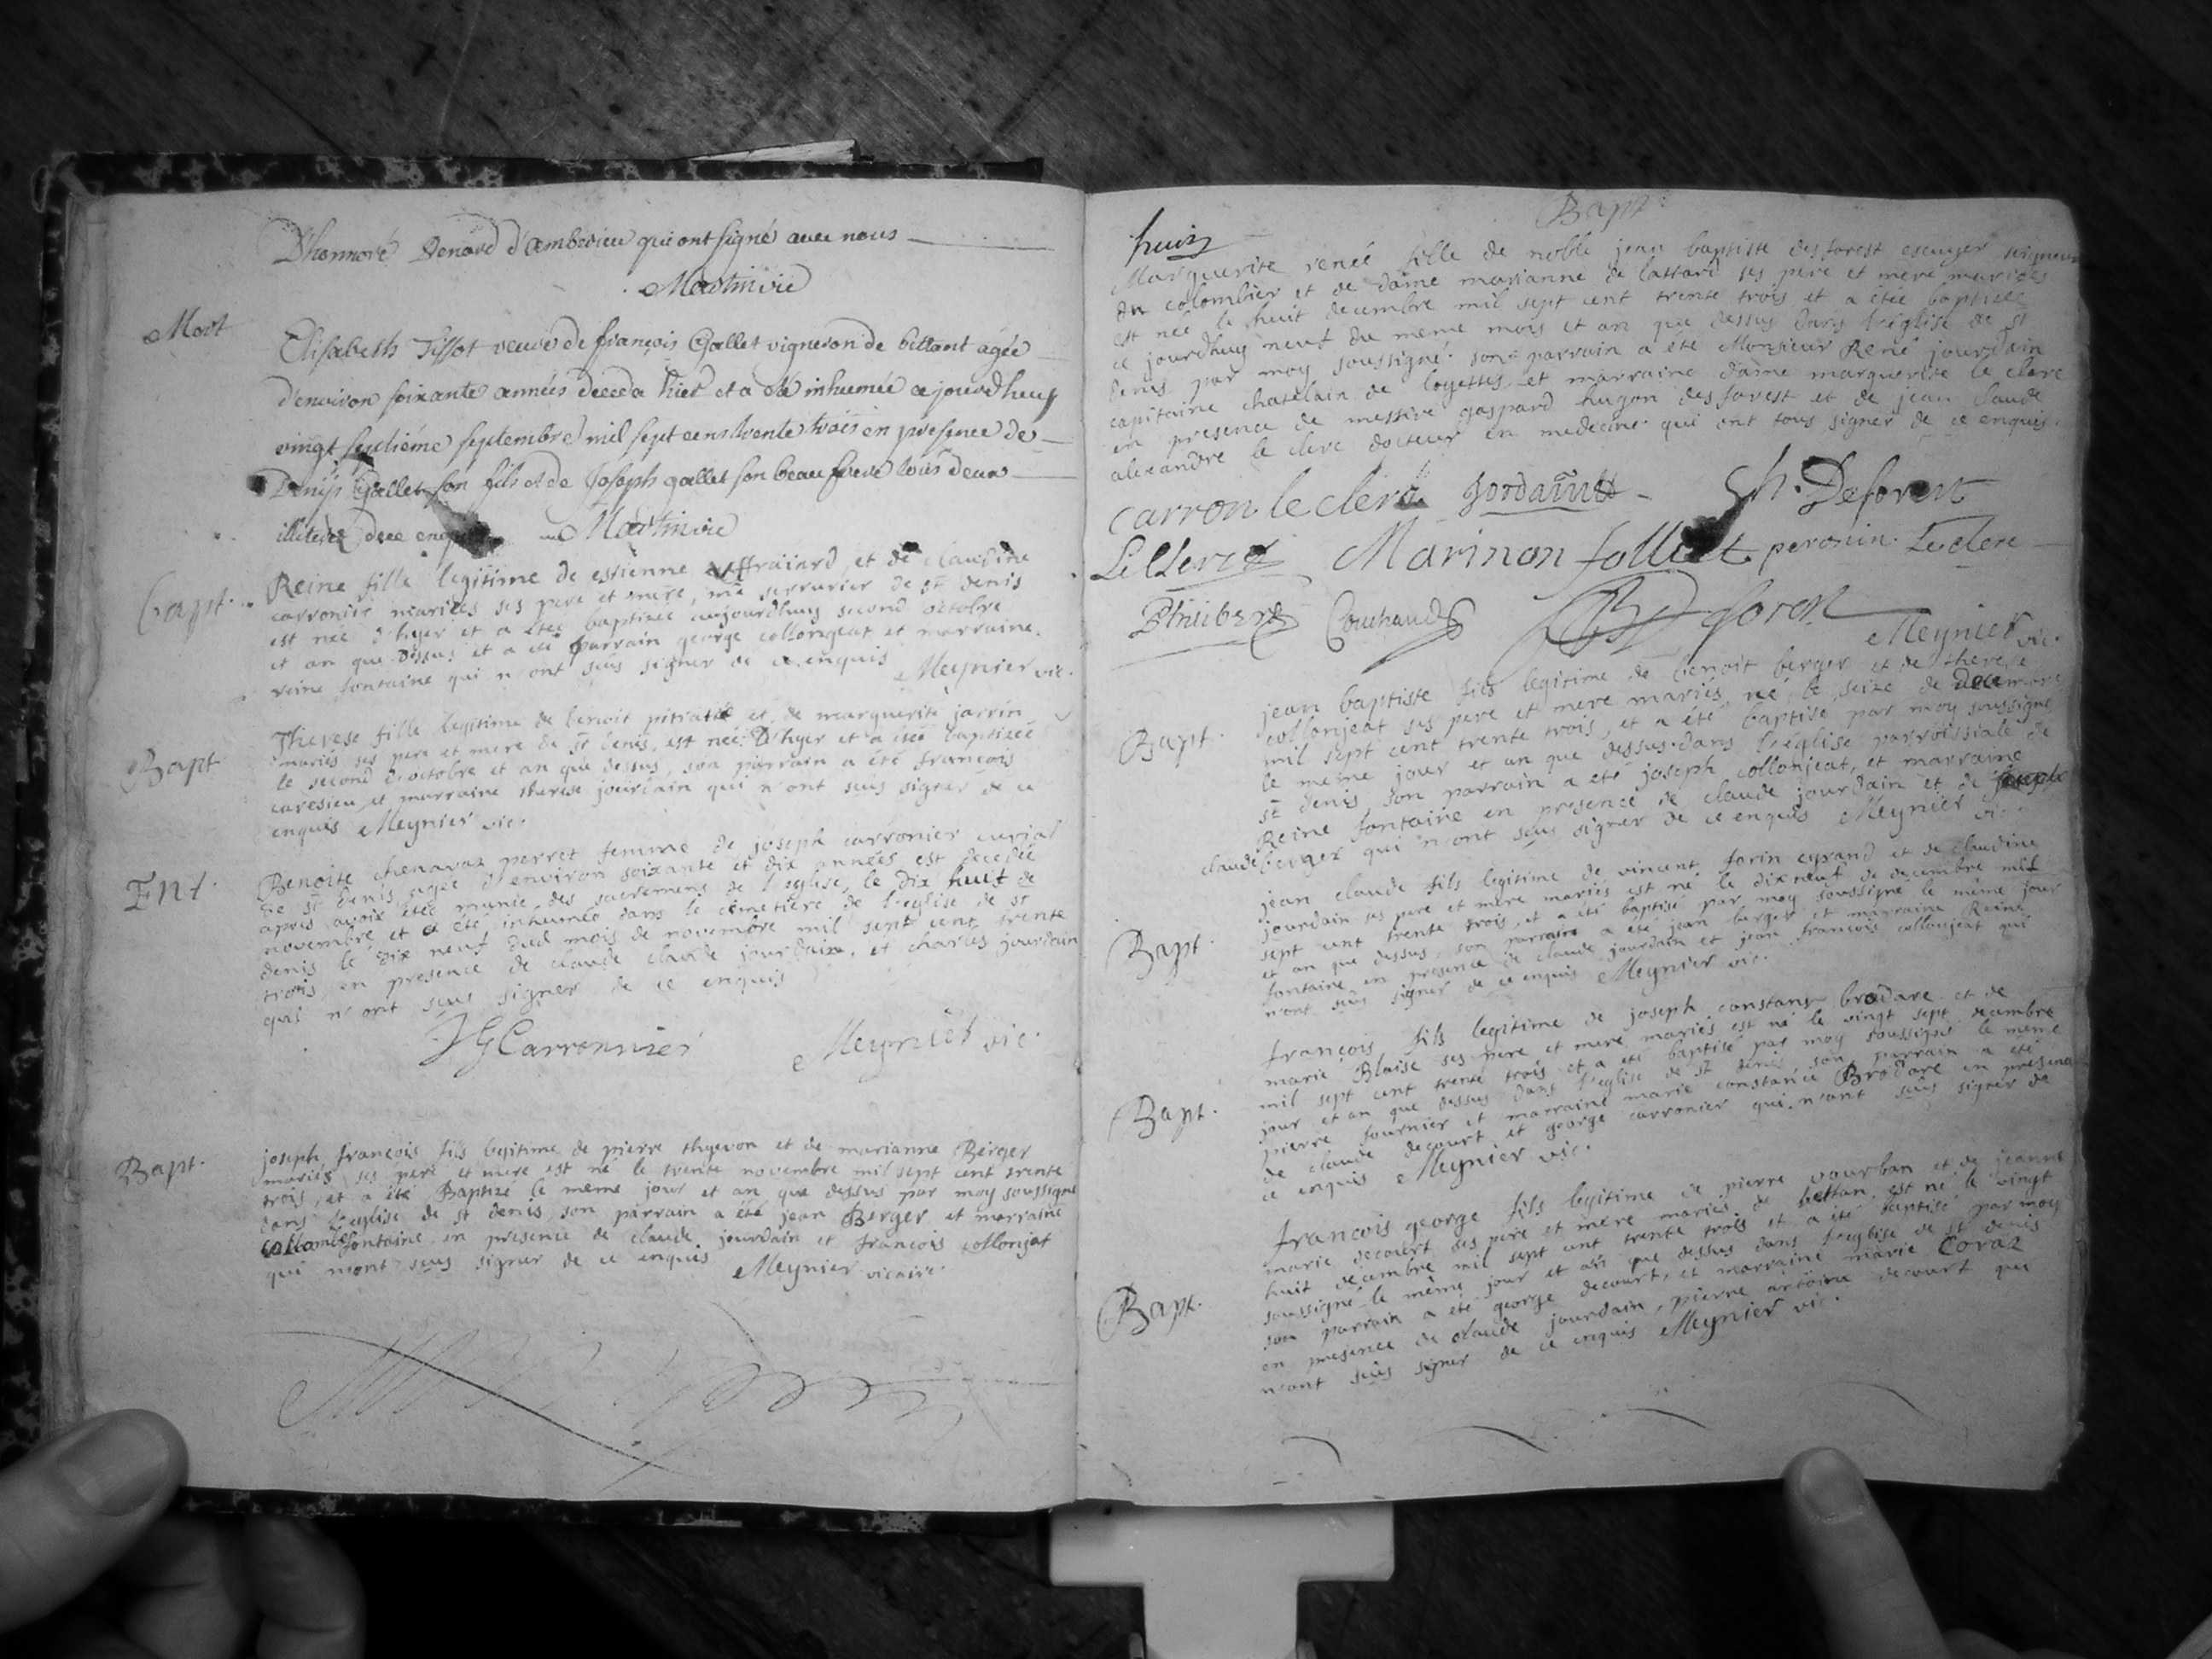 D'honnoré Denard d'amberieu qui ont signé avec nous
Martin vic
Mort
Elisabeth Tissot veuve de françois Gallet vigneron de bettant agée
d'environ soixante années deceda hier et a eté inhumée ce jourdhuy
vingt septiéme septembre mil sept cens trente trois en presence de
Denis Gallet son fils et de Joseph gallet son beau frere tous deux
illiterés de ce Martin vic
Bapt.
Reine fille legitime de estienne effraiard, et de claudine
carronier mariées ses pere et mere, me serrurier de st denis
est née d'hyer et a étée baptizée aujourdhuy second octobre
et an que dessus et a été parrain george collongeat et marraine
reine fontaine qui n'ont seus signer de ce enquis Meynier vic.
Bapt
Therese fille legitime de benoit pitratte et de marguerite jarrin
mariés ses pere et mere de st denis, est née d'hyer et a étée baptizée
le second d'octobre et an que dessus, son parrain a été francois
caresieu et marraine therese jourdain qui n'ont seus signer de ce
enquis Meynier vic.
Ent.
Benoite chenavaz perret femme de joseph carronier curial
de st denis, agée d'environ soixante et dix années est decedée
apres avoir étée munie des sacremens de l'eglise, le dix huit de
novembre et a été inhumée dans le cemetiere de l'eglise de st
denis le dix neuf dud mois de novembre mil sept cent trente
trois, en presence de claude claude jourdain, et charles jourdain
qui n'ont seus signer de ce enquis
JG Carronnier Meynier vic.
Bapt.
joseph françois fils legitime de pierre thyevon et de marianne Berger
mariés ses pere et mere est né le trente novembre mil sept cent trente
trois, et a été Baptizé le meme jour et an que dessus par moy soussigné
dans l'eglise de st denis, son parrain a été jean Berger et marraine
collombe fontaine en presence de claude jourdain et francois collonjat
qui n'ont seus signer de ce enquis Meynier vicaire.
Bapt.
huis
Marguerite renée fille de noble jean baptiste desforest escuyer seigneur
du colombier et de dame marianne de lattard ses pere et mere mariées
est née le huit decembre mil sept cent trente trois et a étée baptizée
ce jourdhuy neuf du meme mois et an que dessus dans l'eglise de st
denis par moy soussigné. son parrain a été Monsieur René jourdain
capitaine chatelain de loyettes et marraine dame marguerite le clerc
en presence de messire gaspard hugon desforest et de jean claude
alexandre le clerc docteur en medecine qui ont tous signer de ce enquis.
Carron le clerc Jordain Ch. Deforest
Le Clerc Marinon folliet peronin. Leclerc
Philibert Couchaud Deforest
Meynier vic.
Bapt.
jean baptiste fils legitime de benoit berger et de therese
collonjeat ses pere et mere mariés né le seize de decembre
mil sept cent trente trois, et a été baptisé par moy soussigné
le meme jour et an que dessus dans l'eglise parroissiale de
st denis, son parrain a eté joseph collonjeat, et marraine
Reine fontaine en presence de claude jourdain et de joseph
claude berger qui n'ont seus signer de ce enquis Meynier vic.
Bapt.
jean claude fils legitime de vincent forin eyrand et de claudine
jourdain ses pere et mere mariés est né le dix neuf de decembre mil
sept cent trente trois, et a été baptisé par moy soussigné le même jour
et an que dessus, son parrain a été jean berger et marraine Reine
fontaine en presence de claude jourdain et jean francois collonjeat qui
n'ont seus signer de ce enquis Meynier vic.
Bapt.
françois fils legitime de joseph constans brodare et de
marie Blaise ses pere et mere mariés est né le vingt sept decembre
mil sept cent trente trois et a été baptisé par moy soussigné le meme
jour et an que dessus dans l'eglise de st denis son parrain a été
pierre fournier et marraine marie constance Brodare en presence
de claude decourt et george carronier qui n'ont seus signer de
ce enquis Meynier vic.
Bapt.
francois george fils legitime de pierre vourban et de jeanne
marie decourt ses pere et mere mariés de bettan, est né le vingt
huit decembre mil sept cent trente trois et a été baptisé par moy
soussigné le même jour et an que dessus dans l'eglise de st denis
son parrain a été george decourt, et marraine marie Coraz
en presence de claude jourdain, pierre antoine decourt qui
n'ont seus signer de ce enquis Meynier vic.